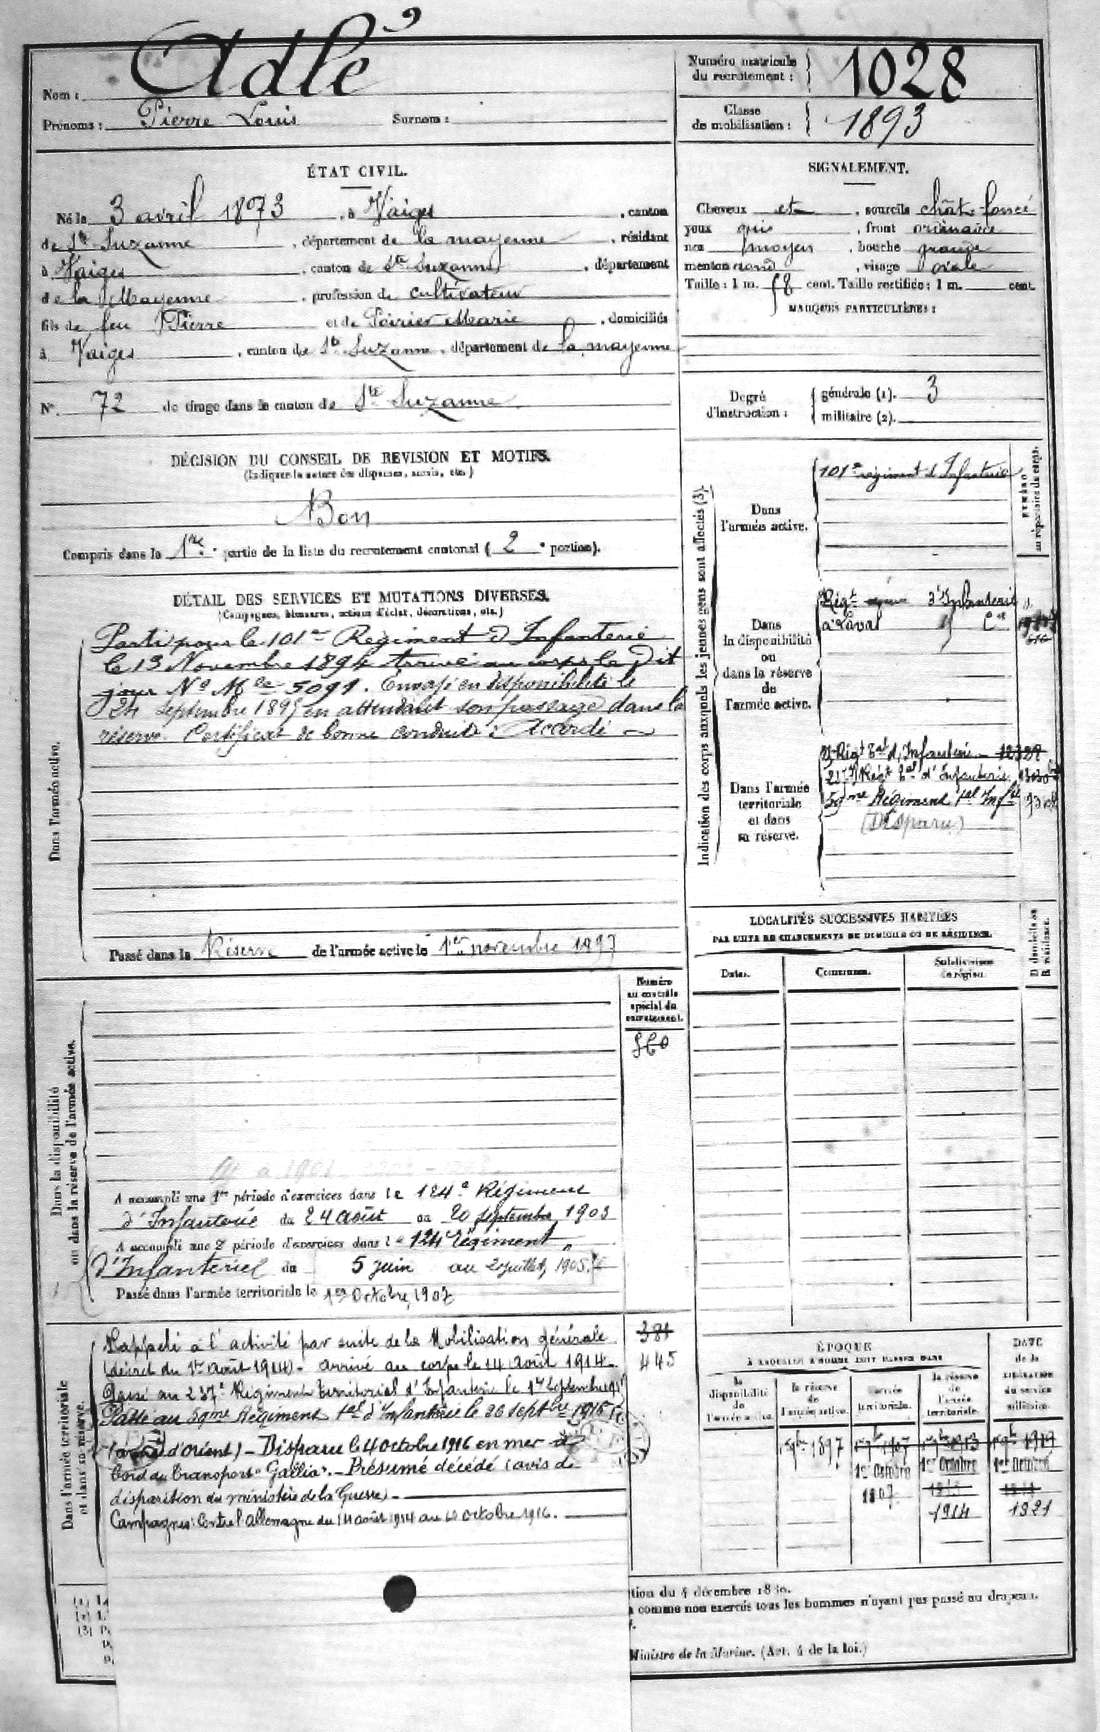 Nom : Adlé
Prénoms : Pierre Louis Surnom :
Numéro matricule du recrutement : 1028
Classe de mobilisation : 1893
ÉTAT CIVIL.
Né le 3 avril 1873, à Vaiges, canton
de Ste Suzanne, département de la mayenne, résidant
à Vaiges, canton de Ste Suzanne, département
de la Mayenne, profession de cultivateur
fils de feu Pierre et de Poirier Marie, domiciliés
à Vaiges, canton de Ste Suzanne, département de la mayenne
N° 72 de tirage dans le canton de Ste Suzanne
SIGNALEMENT.
Cheveux et, sourcils chât. foncé
yeux gris, front ordinaire
nez moyen, bouche grande
menton rond, visage ovale
Taille : 1 m. 58 cent. Taille rectifiée : 1 m. cent.
MARQUES PARTICULIÈRES :
Degré d'instruction : générale (1). 3
militaire (2).
DÉCISION DU CONSEIL DE REVISION ET MOTIFS.
(Indiquer la nature des dispenses, sursis, etc.)
Bon
Compris dans la 1re partie de la liste du recrutement cantonal (2e portion).
DÉTAIL DES SERVICES ET MUTATIONS DIVERSES.
(Campagnes, blessures, actions d'éclat, décorations, etc.)
Dans l'armée active.
Parti pour le 101me Régiment d'Infanterie
le 13 Novembre 1894 Arrivé au corps le dit
jour No Mle 5091. Envoyé en disponibilité le
24 Septembre 1895 en attendant son passage dans la
réserve. Certificat de bonne conduite : Accordé
Passé dans la Réserve de l'armée active le 1er novembre 1897
Indication des corps auxquels les jeunes gens sont affectés (3)
NUMÉRO au répertoire du corps.
Dans l'armée active.
101e régiment d'Infanterie
Dans la disponibilité ou dans la réserve de l'armée active.
Régt d'Infanterie
à Laval
Dans l'armée territoriale et dans sa réserve.
Régt Tal d'Infanterie
Régt Tal d'Infanterie
59me Régiment Tal Infie
(Disparu)
LOCALITÉS SUCCESSIVES HABITÉES
PAR SUITE DE CHANGEMENTS DE DOMICILE OU DE RÉSIDENCE.
Dates. Communes. Subdivision de région. D domicile ou R résidence.
Numéro au contrôle spécial du recrutement.
Dans la disponibilité ou dans la réserve de l'armée active.
A accompli une 1re période d'exercices dans le 124e Régiment
d'Infanterie du 24 août au 20 septembre 1903
A accompli une 2e période d'exercices dans le 124e Régiment
d'Infanterie du 5 juin au 2 juillet 1905
Passé dans l'armée territoriale le 1er Octobre 1907
Dans l'armée territoriale et dans sa réserve.
Rappelé à l'activité par suite de la Mobilisation générale
(décret du 1er août 1914) - arrivé au corps le 14 août 1914.
Passé au 237e Régiment territorial d'Infanterie le 1er Septembre 1915
Passé au 59me Régiment Tal d'Infanterie le 26 septbre 1915
(armée d'orient) - Disparu le 4 octobre 1916 en mer à
bord du transport "Gallia". - Présumé décédé (avis de
disparition du ministère de la Guerre)
Campagnes : Contre l'Allemagne du 14 août 1914 au 4 octobre 1916.
381
445
ÉPOQUE
À LAQUELLE L'HOMME DOIT PASSER DANS
DATE de la LIBÉRATION du service militaire.
la disponibilité de l'armée active. la réserve de l'armée active. l'armée territoriale. la réserve de l'armée territoriale.
1er 9bre 1897 1er 9bre 1907 1er 9bre 1913 1er 9bre 1919
1er Octobre 1er Octobre 1er Octobre
1907
1914 1921
tion du 4 décembre 18
comme non exercés tous les hommes n'ayant pas passé au drapeau.
Ministre de la Marine. (Art. 4 de la loi.)